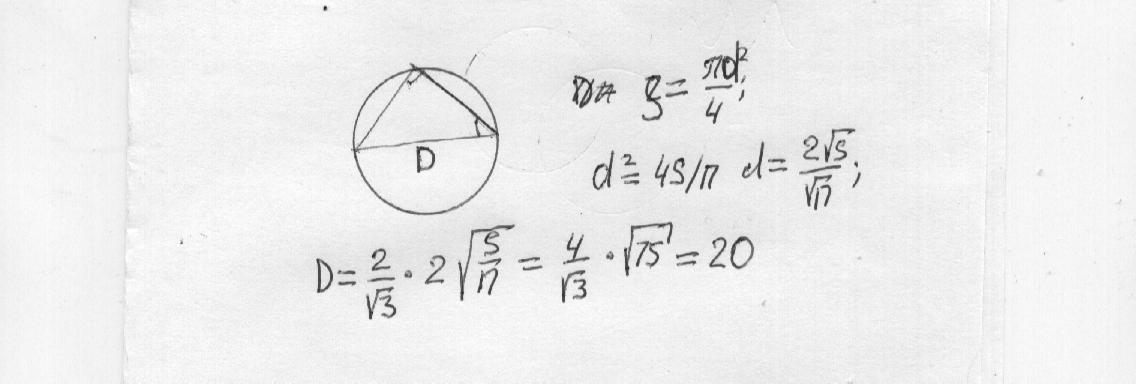 S = πd²/4;
D
d² = 4S/π d = 2√S/√π;
D = 2/√3 · 2√(S/π) = 4/√3 · √75 = 20